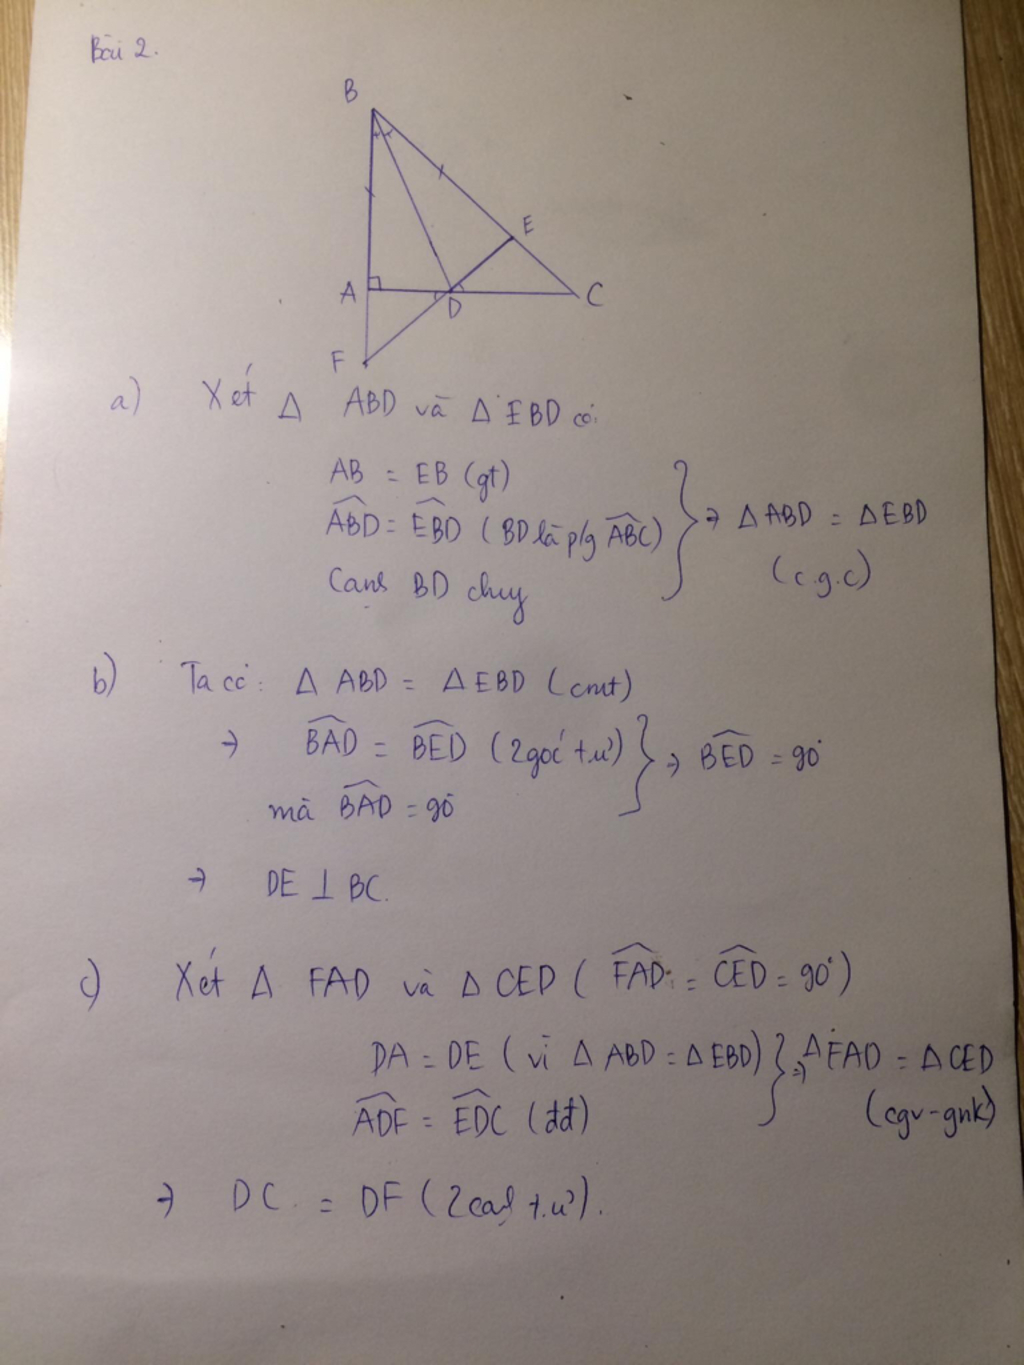 Bài 2.
B
E
A
D
C
F
a) Xét Δ ABD và Δ EBD có:
AB = EB (gt)
$\widehat{ABD}$ = $\widehat{EBD}$ (BD là p/g $\widehat{ABC}$) } → Δ ABD = Δ EBD
Cạnh BD chung (c.g.c)
b) Ta có: Δ ABD = Δ EBD (cmt)
→ $\widehat{BAD}$ = $\widehat{BED}$ (2 góc t.ư) } → $\widehat{BED}$ = 90°
mà $\widehat{BAD}$ = 90°
→ DE ⊥ BC.
c) Xét Δ FAD và Δ CED ( $\widehat{FAD}$ = $\widehat{CED}$ = 90°)
DA = DE (vì Δ ABD = Δ EBD) } ⇒ Δ FAD = Δ CED
$\widehat{ADF}$ = $\widehat{EDC}$ (đđ) (cgv-gnk)
→ DC = DF (2 cạnh t.ư).